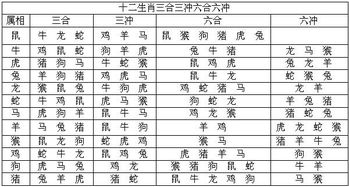 十二生肖三合三冲六合六冲
属相 三合 三冲 六合 六冲
鼠 牛 龙 蛇 鸡 羊 马 鼠 猴 狗 猪 虎 兔
牛 鸡 鼠 蛇 狗 羊 虎 兔 牛 猪 龙 马 猴
虎 猪 狗 马 牛 蛇 猴 鼠 鸡 虎 兔 龙 羊
兔 羊 狗 猪 鸡 龙 马 鼠 牛 龙 蛇 猴 兔
龙 猴 鼠 兔 龙 狗 牛 鸡 蛇 猪 马 龙 羊
蛇 牛 鸡 鼠 虎 马 猴 狗 蛇 龙 羊 兔 猪
马 虎 狗 羊 鼠 牛 兔 鸡 龙 猴 猪 蛇 马
羊 马 兔 猪 鼠 牛 狗 羊 鸡 虎 龙 蛇 猴
猴 鼠 龙 狗 蛇 虎 鸡 猴 马 猪 羊 牛 兔
鸡 蛇 牛 龙 鼠 鸡 兔 虎 猪 羊 马 狗 猴
狗 虎 马 兔 鸡 龙 猴 猪 狗 鼠 蛇 牛 羊
猪 兔 羊 虎 猪 蛇 鼠 牛 龙 鸡 狗 马 猴